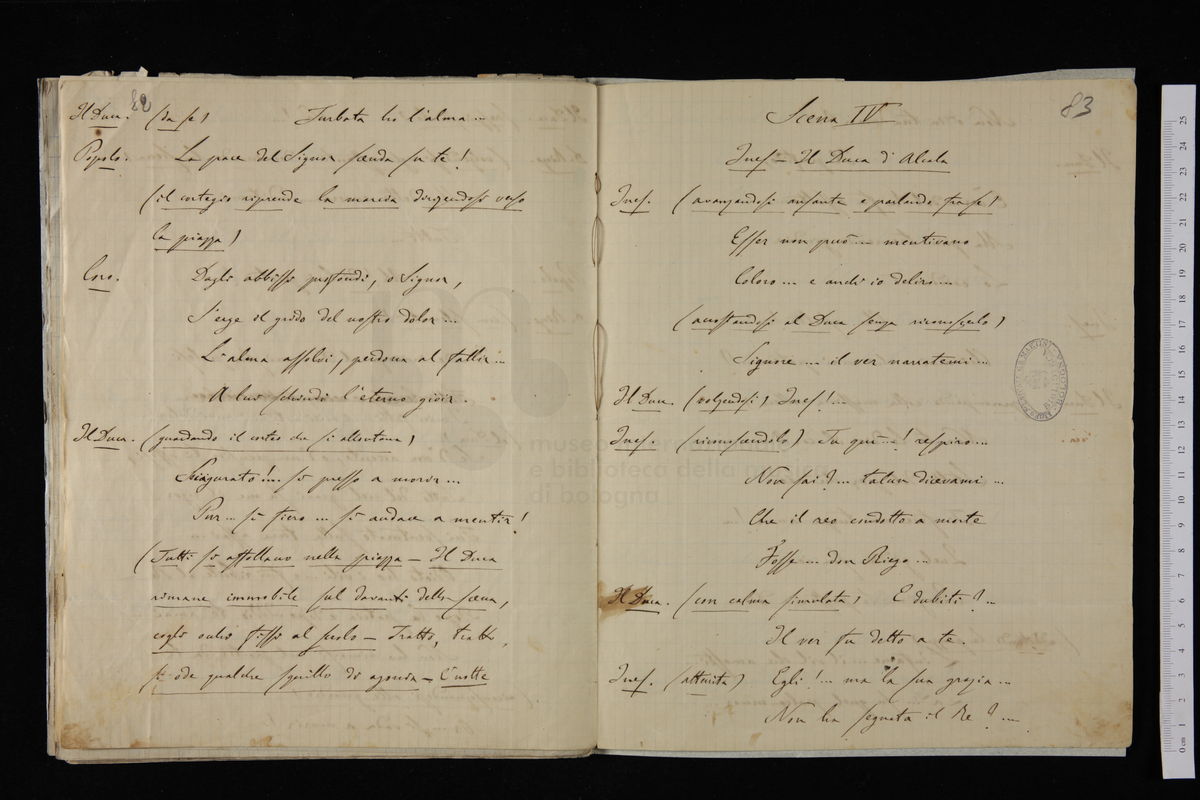 82
Il Duca. (da se) Turbata ho l'alma ...
Popolo. La pace del Signor scenda su te!
(il cortegio riprende la marcia dirigendosi verso
la piazza)
Coro. Dagli abbissi profondi, o Signor,
S'erge il grido del nostro dolor ...
L'alma assolvi, perdona al fallir ...
A lui schiudi l'eterno gioir.
Il Duca. (guardando il corteo che si allontana)
Sciagurato!... sì presso a morir ...
Pur ... sì fiero ... sì audace a mentir!
(Tutti si affollano nella piazza – Il Duca
rimane immobile sul davanti della scena,
cogli occhi fissi al suolo – Tratto, tratto,
si ode qualche squillo di agonia – È notte
83
Scena IV
Ines – Il Duca di Alcala
Ines. (avanzandosi ansante e parlando fra se)
Esser non può ... mentivano
Coloro ... e anch'io deliro ...
(accostandosi al Duca senza riconoscerlo)
Signore ... il ver narratemi ...
Il Duca. (volgendosi) Ines! ...
Ines. (riconoscendolo) Tu quì ...! respiro ...
Non sai? ... talun dicevami ...
Che il reo condotto a morte
Fosse ... don Riego ...
Il Duca. (con calma simulata) E dubiti? ...
Il ver fu detto a te.
Ines. (atterrita) Egli! ... ma la sua grazia ...
Non ha segnata il Re? ...
museo internazionale
e biblioteca della musica
di bologna